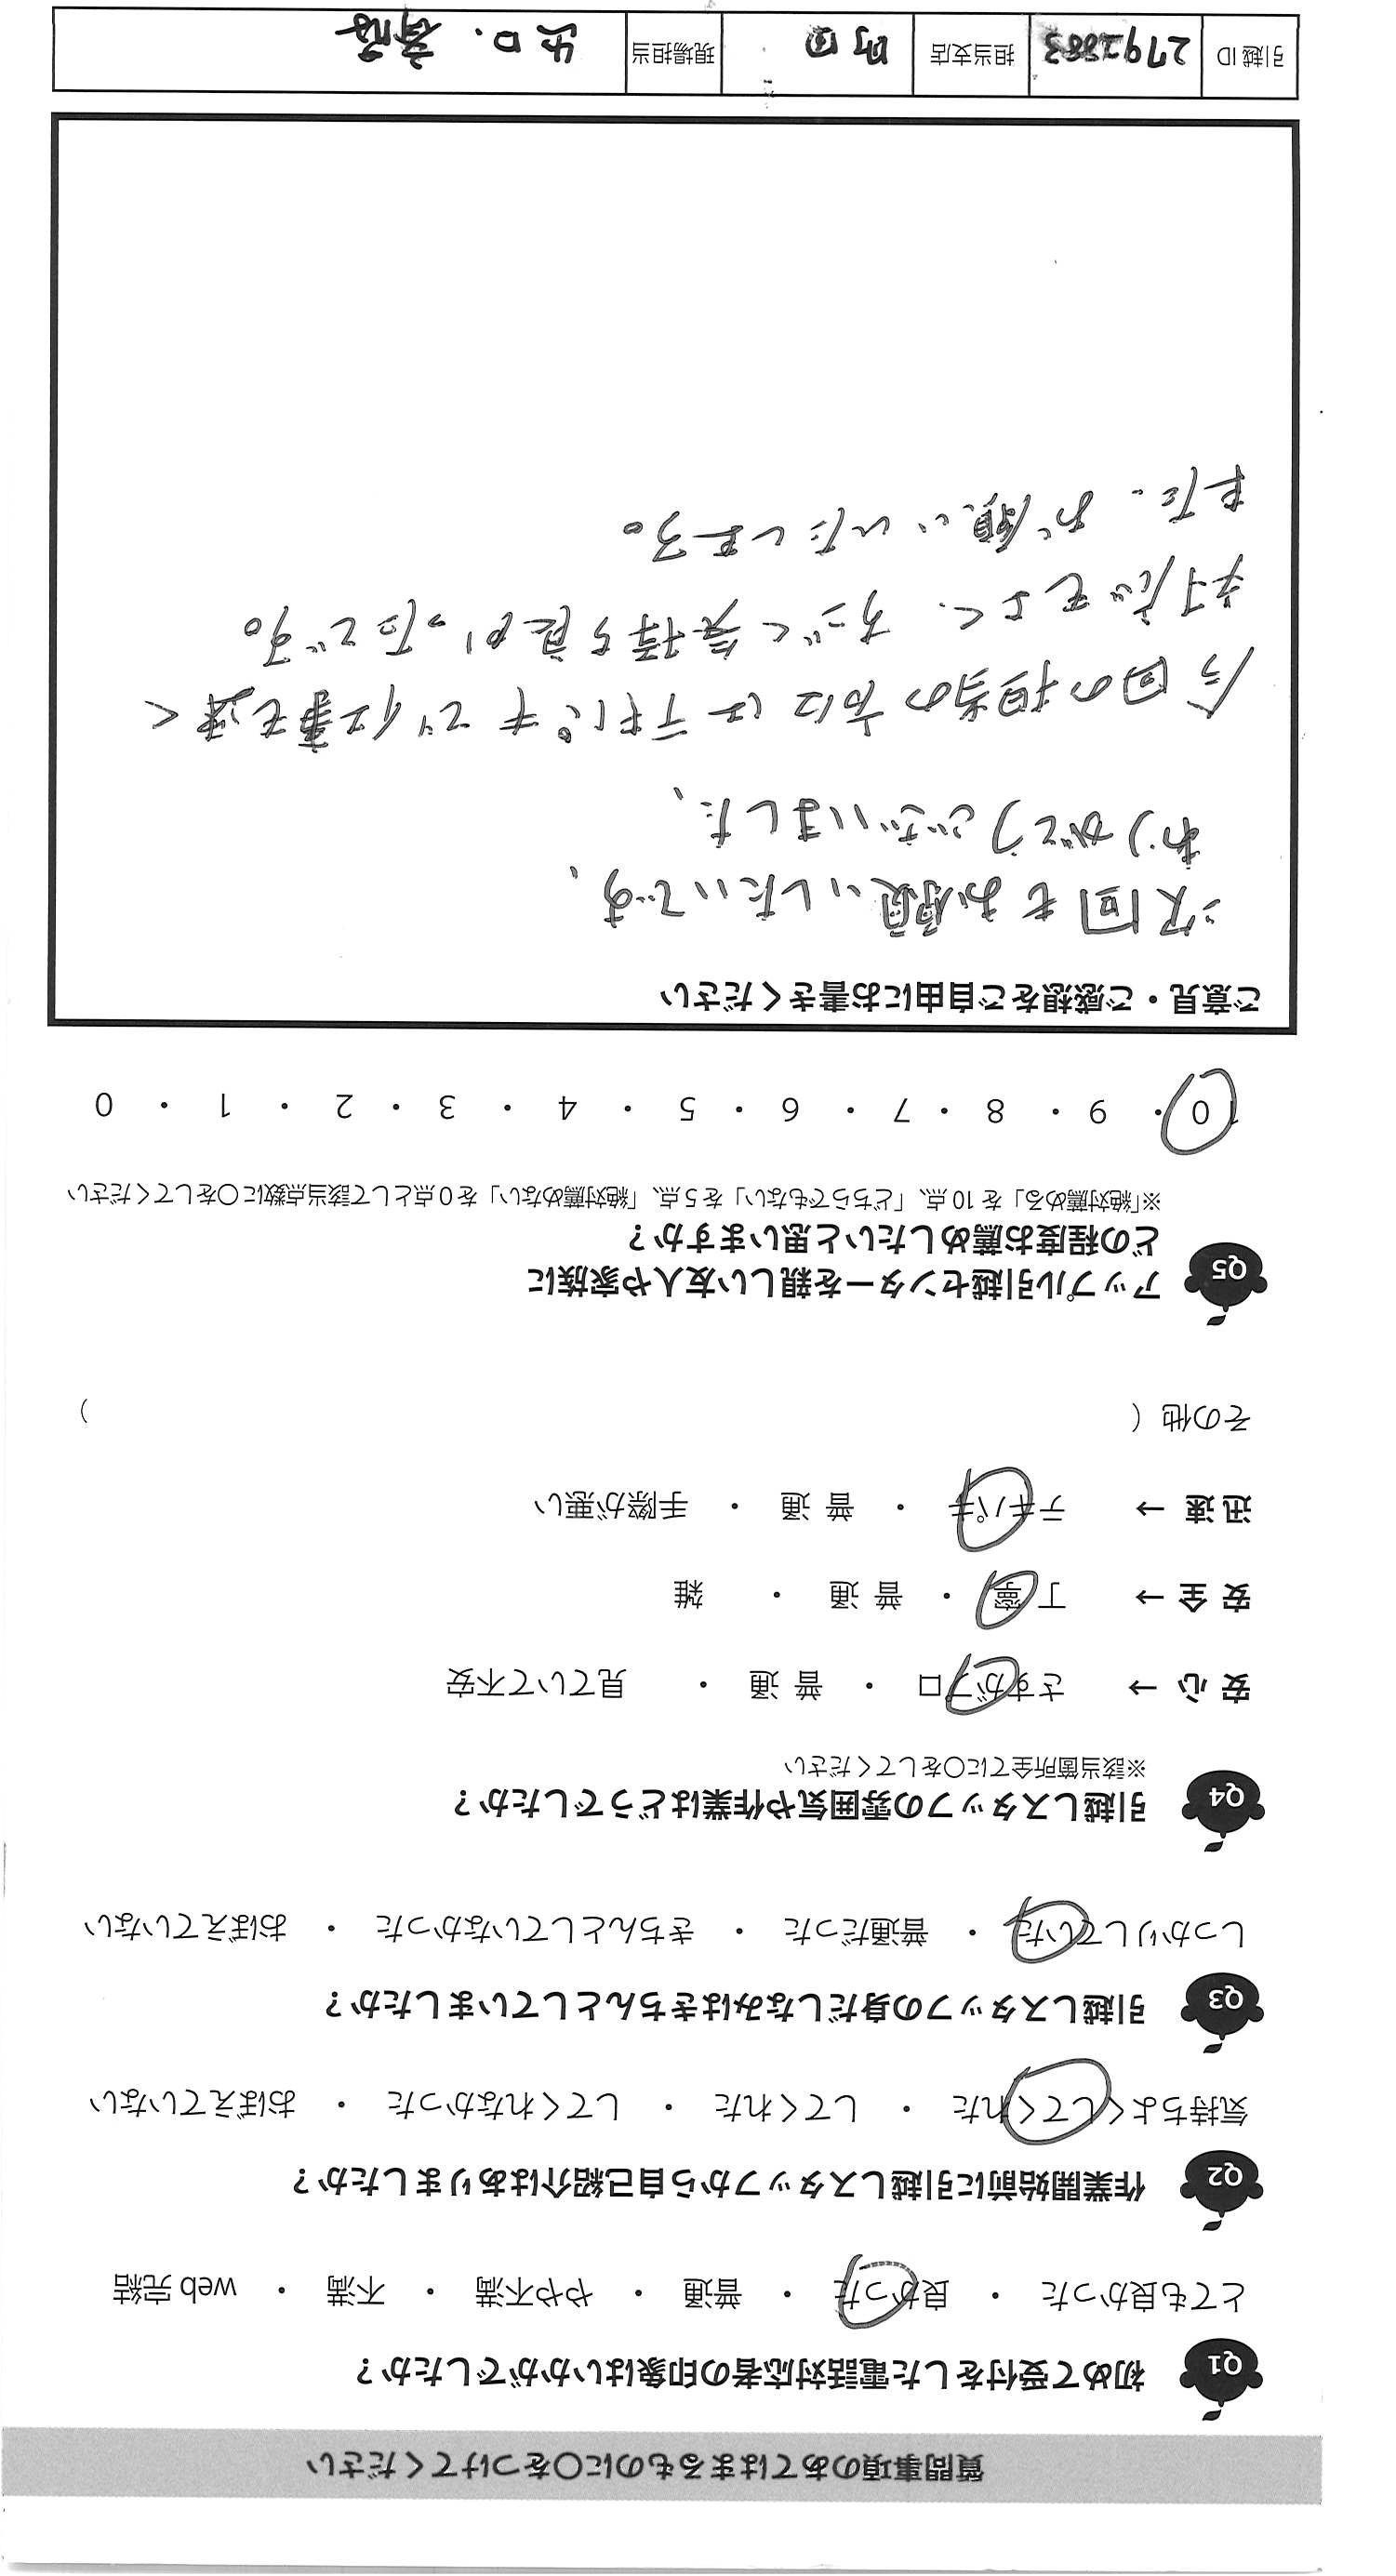 質問事項のあてはまるものに○をつけてください
Q1 初めて受付をした電話対応者の印象はいかがでしたか？
とても良かった ・ 良かった ・ 普通 ・ やや不満 ・ 不満 ・ web 完結
Q2 作業開始前に引越しスタッフから自己紹介はありましたか？
気持ちよくしてくれた ・ してくれた ・ してくれなかった ・ おぼえていない
Q3 引越しスタッフの身だしなみはきちんとしていましたか？
しっかりしていた ・ 普通だった ・ きちんとしていなかった ・ おぼえていない
Q4 引越しスタッフの雰囲気や作業はどうでしたか？
※該当箇所全てに○をしてください
安 心 → さすがプロ ・ 普 通 ・ 見ていて不安
安 全 → 丁 寧 ・ 普 通 ・ 雑
迅 速 → テキパキ ・ 普 通 ・ 手際が悪い
その他（ ）
Q5 アップル引越センターを親しい友人や家族に
どの程度お薦めしたいと思いますか？
※「絶対薦める」を 10 点、「どちらでもない」を 5 点、「絶対薦めない」を 0 点として該当点数に○をしてください
10 ・ 9 ・ 8 ・ 7 ・ 6 ・ 5 ・ 4 ・ 3 ・ 2 ・ 1 ・ 0
ご意見・ご感想をご自由にお書きください
次回もお願いしたいです、
ありがとうございました、
今回の担当の方は テキパキで仕事も速く
対応もよく、すごく気持ち良かったです。
また、お願いいたします。
引越 ID 担当支店 町田 現場担当 出口、